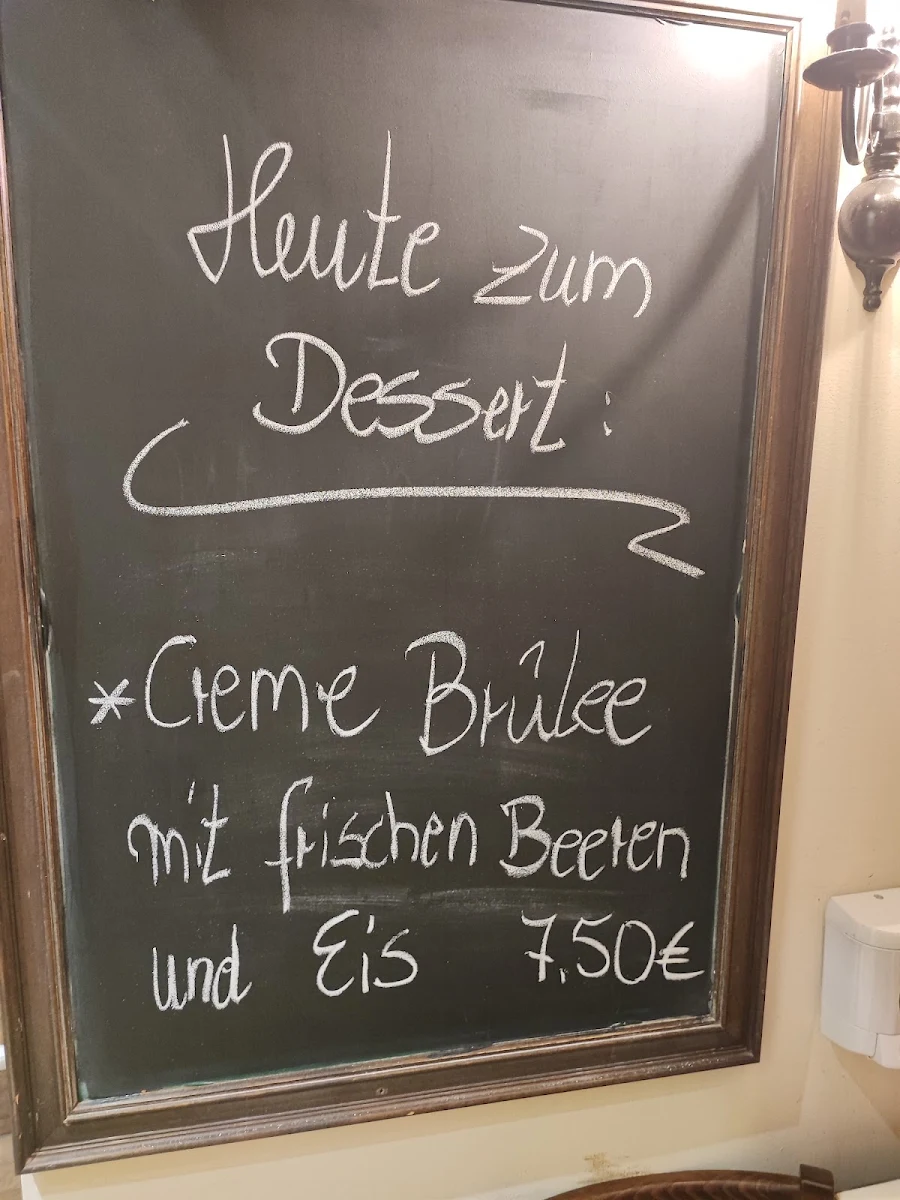 Heute zum
Dessert:
*Creme Brûlee
mit frischen Beeren
und Eis 7.50€